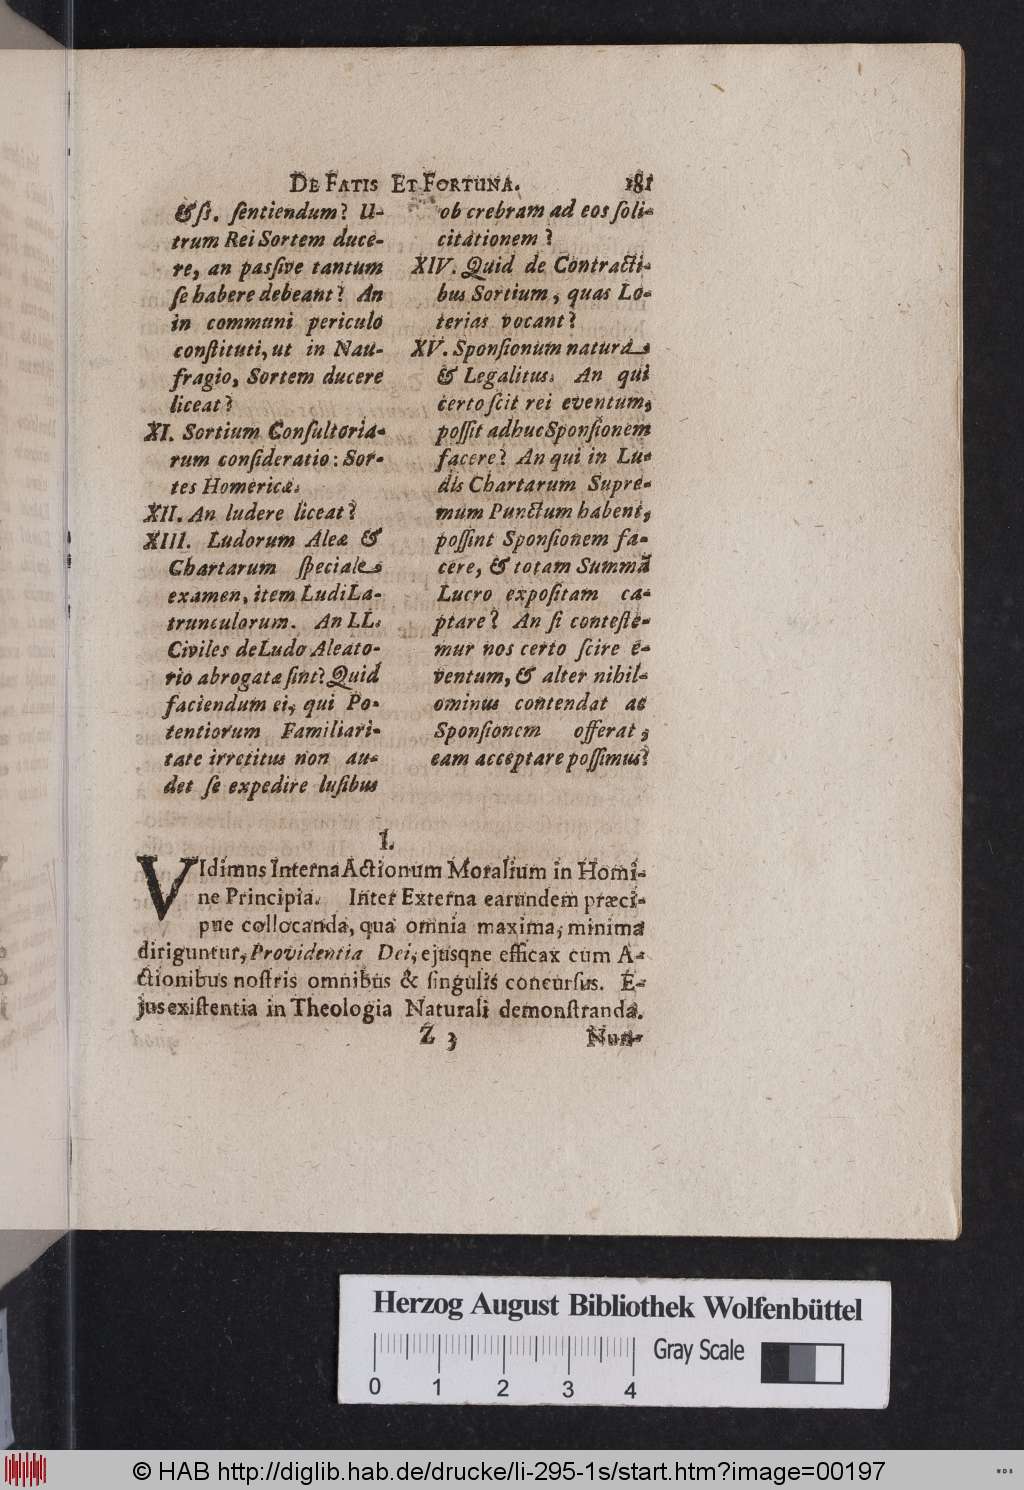 DE FATIS ET FORTUNA. 181
&ſi. ſentiendum? U-
trum Rei Sortem duce-
re, an paſſive tantum
ſe habere debeant? An
in communi periculo
conſtituti, ut in Nau-
fragio, Sortem ducere
liceat?
XI. Sortium Conſultoria-
rum conſideratio: Sor-
tes Homericæ.
XII. An ludere liceat?
XIII. Ludorum Aleæ &
Chartarum ſpeciale
examen, item Ludi La-
trunculorum. An LL.
Civiles de Ludo Aleato-
rio abrogatæ ſint? Quid
faciendum ei, qui Po-
tentiorum Familiari-
tate irretitus non au-
det ſe expedire luſibus
ob crebram ad eos ſoli-
citationem?
XIV. Quid de Contracti-
bus Sortium, quas Lo-
terias vocant?
XV. Sponſionum natura
& Legalitus. An qui
certo ſcit rei eventum,
poſſit adhuc Sponſionem
facere? An qui in Lu-
dis Chartarum Supre-
mum Punctum habent,
poſſint Sponſionem fa-
cere, & totam Summã
Lucro expoſitam ca-
ptare? An ſi conteſte-
mur nos certo ſcire e-
ventum, & alter nihil-
ominus contendat ac
Sponſionem offerat,
eam acceptare poſſimus?
I.
VIdimus Interna Actionum Moralium in Homi-
ne Principia. Inter Externa earundem præci-
pue collocanda, qua omnia maxima, minima
diriguntur, Providentia Dei, ejusque efficax cum A-
ctionibus noſtris omnibus & ſingulis concurſus. E-
jus exiſtentia in Theologia Naturali demonſtranda.
Z 3 Nun-
Herzog August Bibliothek Wolfenbüttel
Gray Scale
0 1 2 3 4
© HAB http://diglib.hab.de/drucke/li-295-1s/start.htm?image=00197